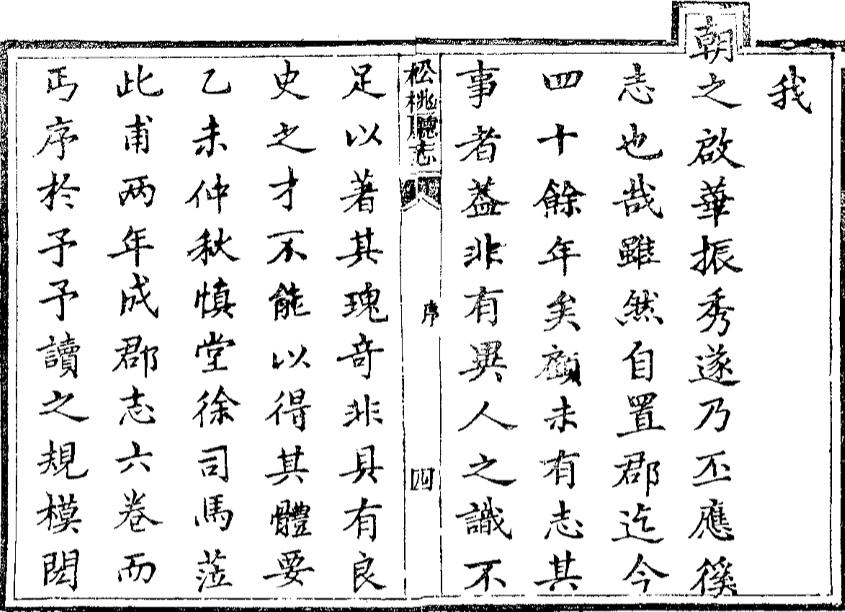 我
朝之啟華振秀遂乃丕應徯
志也哉雖然自置郡迄今
四十餘年矣顧未有志其
事者葢非有異人之識不
松桃廳志
序
四
足以著其瑰奇非具有良
史之才不能以得其體要
乙未仲秋慎堂徐司馬蒞
此甫两年成郡志六卷而
丐序於予予讀之規模閎